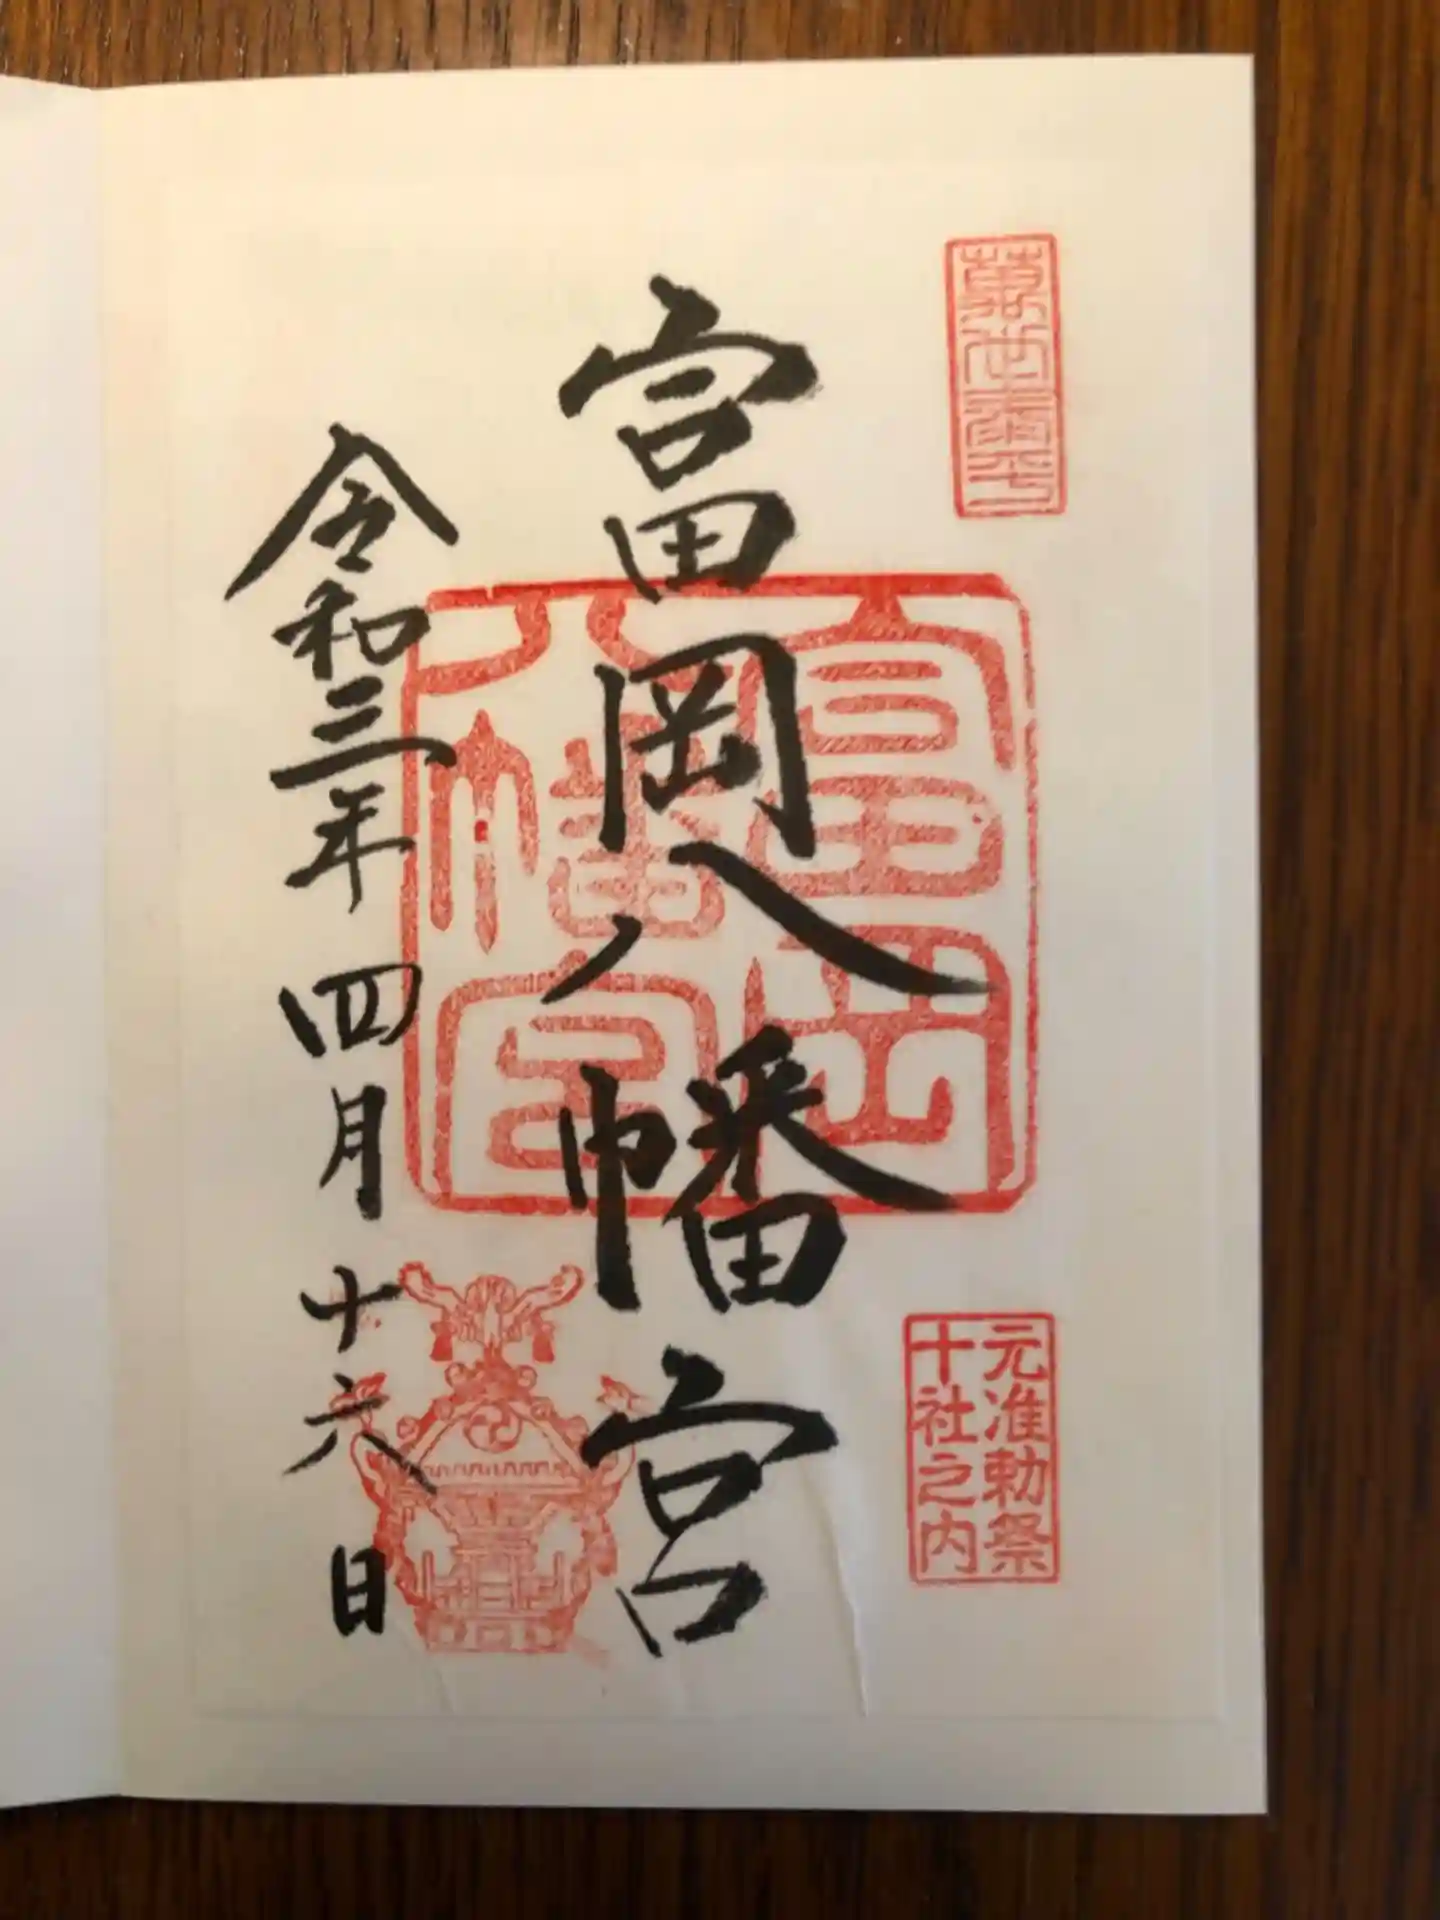 元准勅祭
十社之内
富岡八幡宮
富岡
八幡宮
令和三年四月十六日